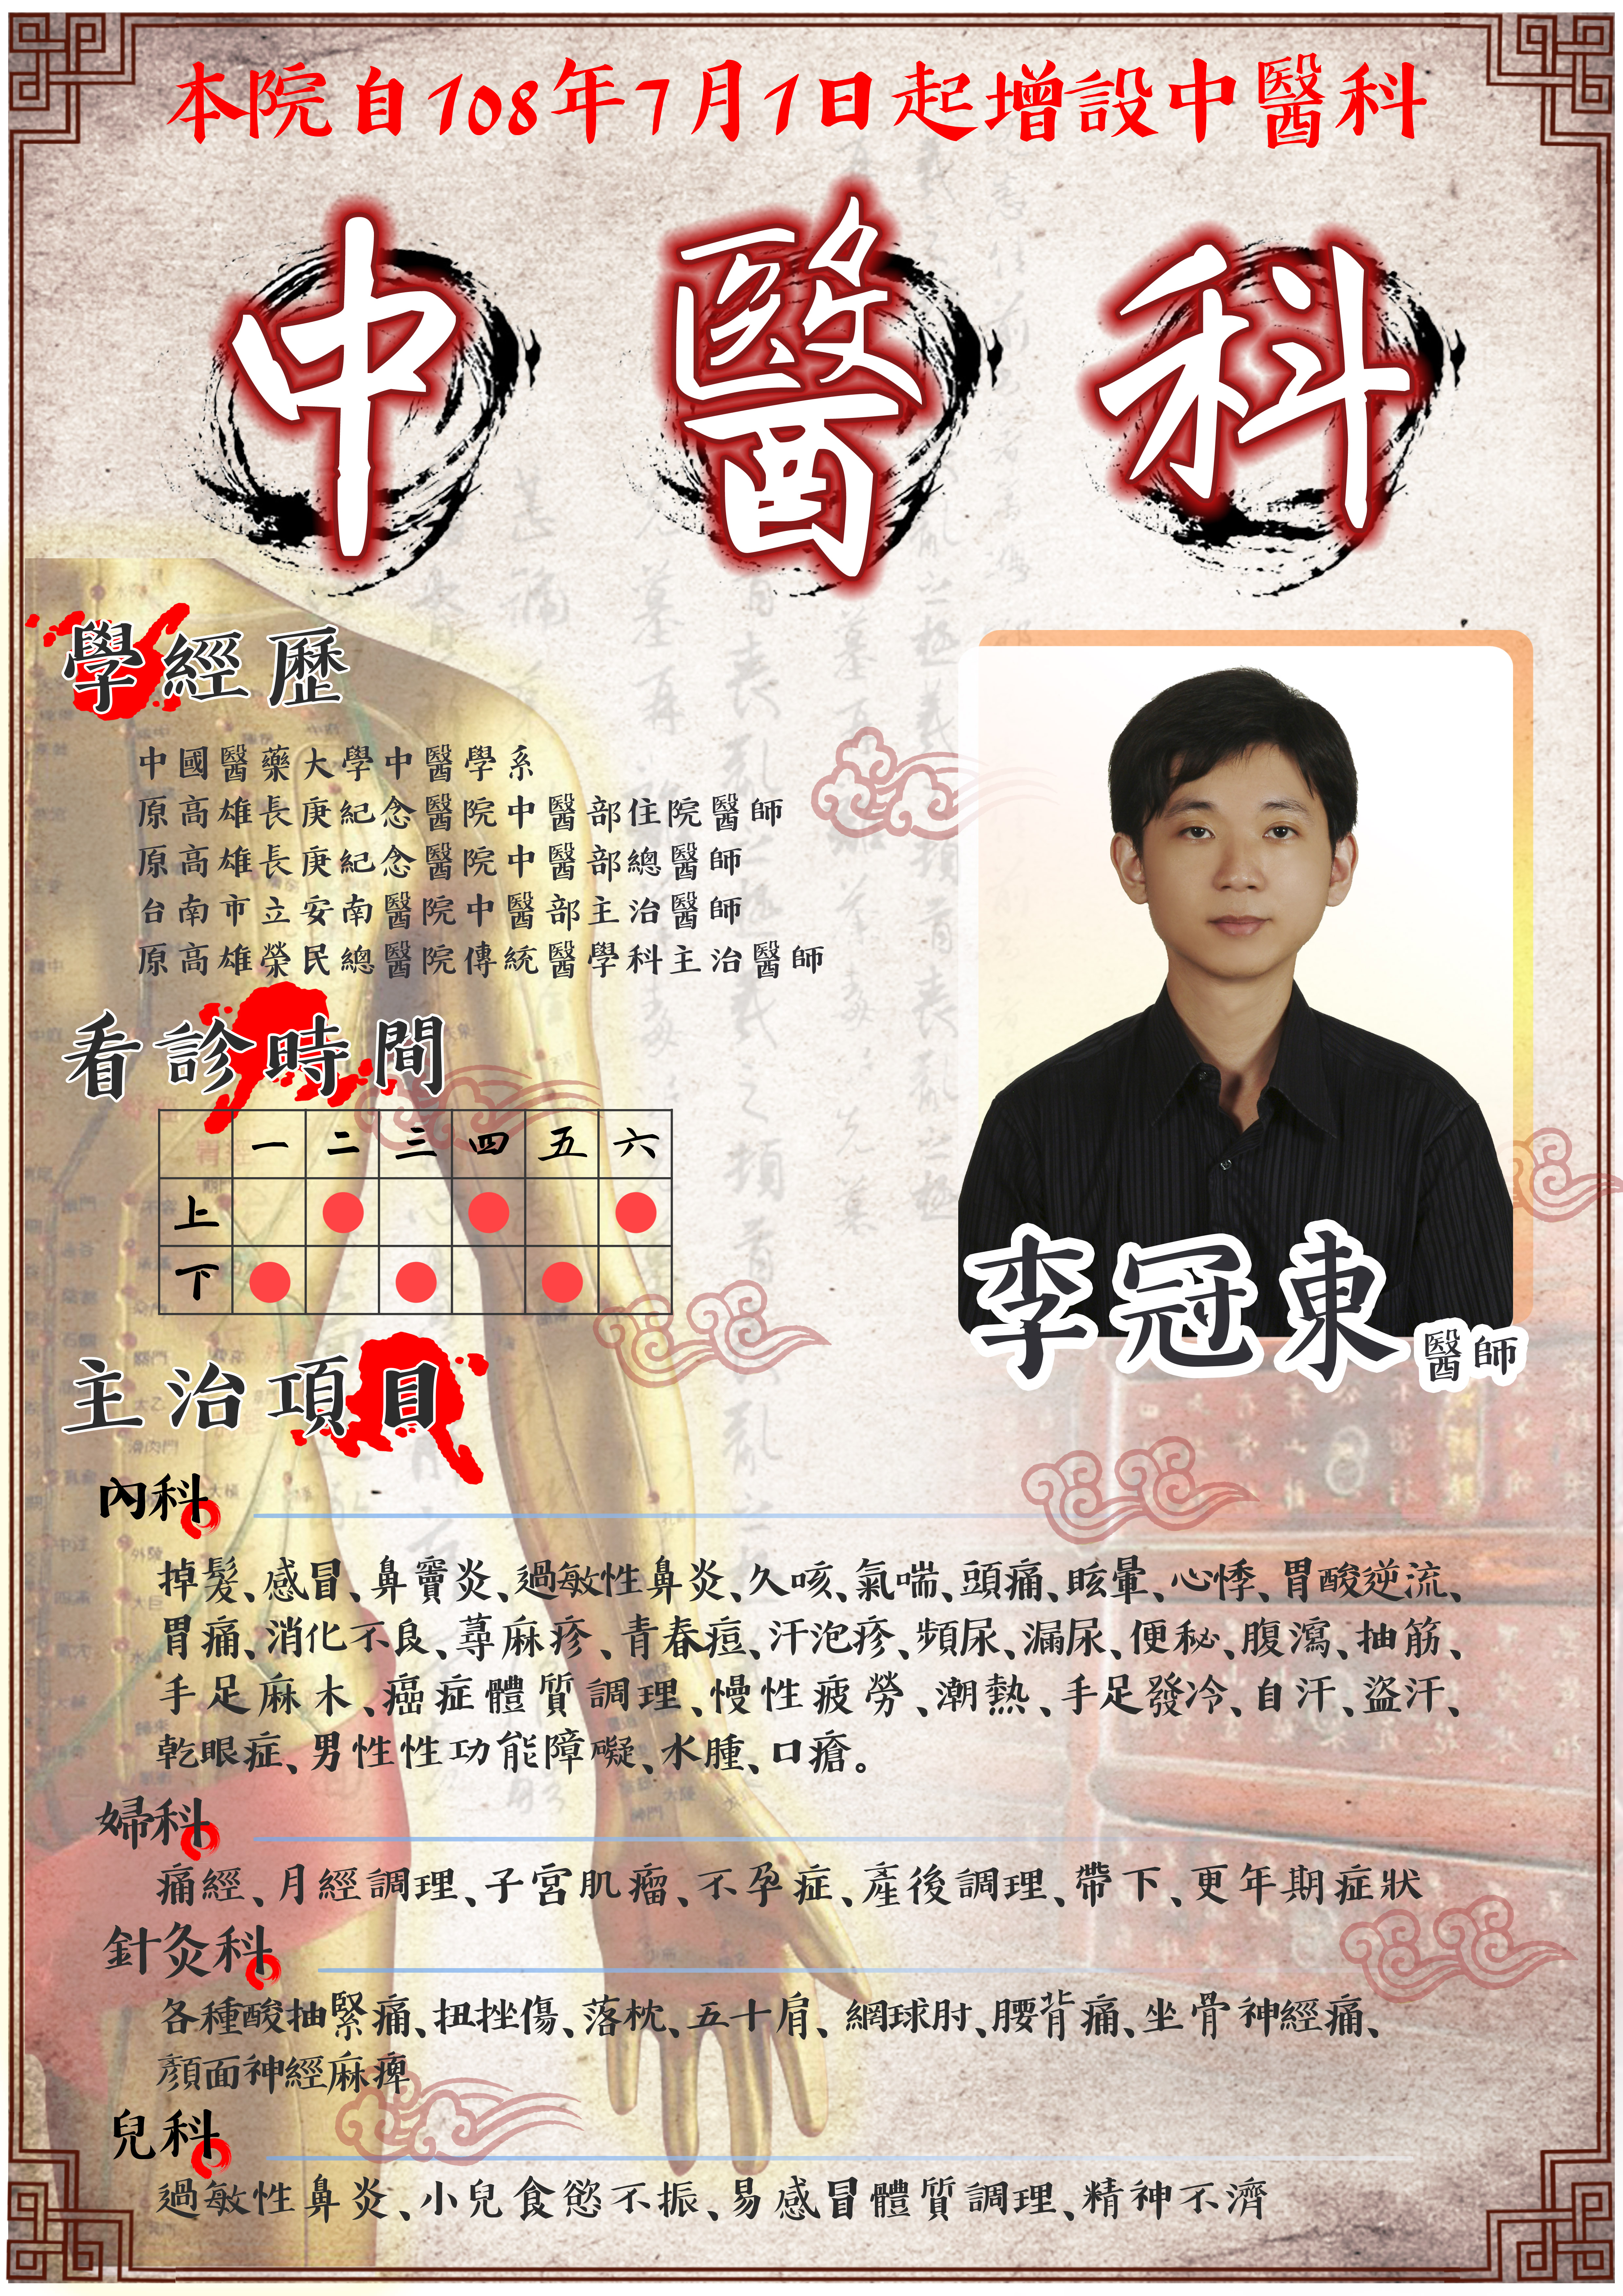 本院自108年7月1日起增設中醫科
中醫科
學經歷
中國醫藥大學中醫學系
原高雄長庚紀念醫院中醫部住院醫師
原高雄長庚紀念醫院中醫部總醫師
台南市立安南醫院中醫部主治醫師
原高雄榮民總醫院傳統醫學科主治醫師
李冠東醫師
看診時間
一 二 三 四 五 六
上
下
主治項目
內科
掉髮、感冒、鼻竇炎、過敏性鼻炎、久咳、氣喘、頭痛、眩暈、心悸、胃酸逆流、
胃痛、消化不良、蕁麻疹、青春痘、汗泡疹、頻尿、漏尿、便秘、腹瀉、抽筋、
手足麻木、癌症體質調理、慢性疲勞、潮熱、手足發冷、自汗、盜汗、
乾眼症、男性性功能障礙、水腫、口瘡。
婦科
痛經、月經調理、子宮肌瘤、不孕症、產後調理、帶下、更年期症狀
針灸科
各種酸抽緊痛、扭挫傷、落枕、五十肩、網球肘、腰背痛、坐骨神經痛、
顏面神經麻痺
兒科
過敏性鼻炎、小兒食慾不振、易感冒體質調理、精神不濟